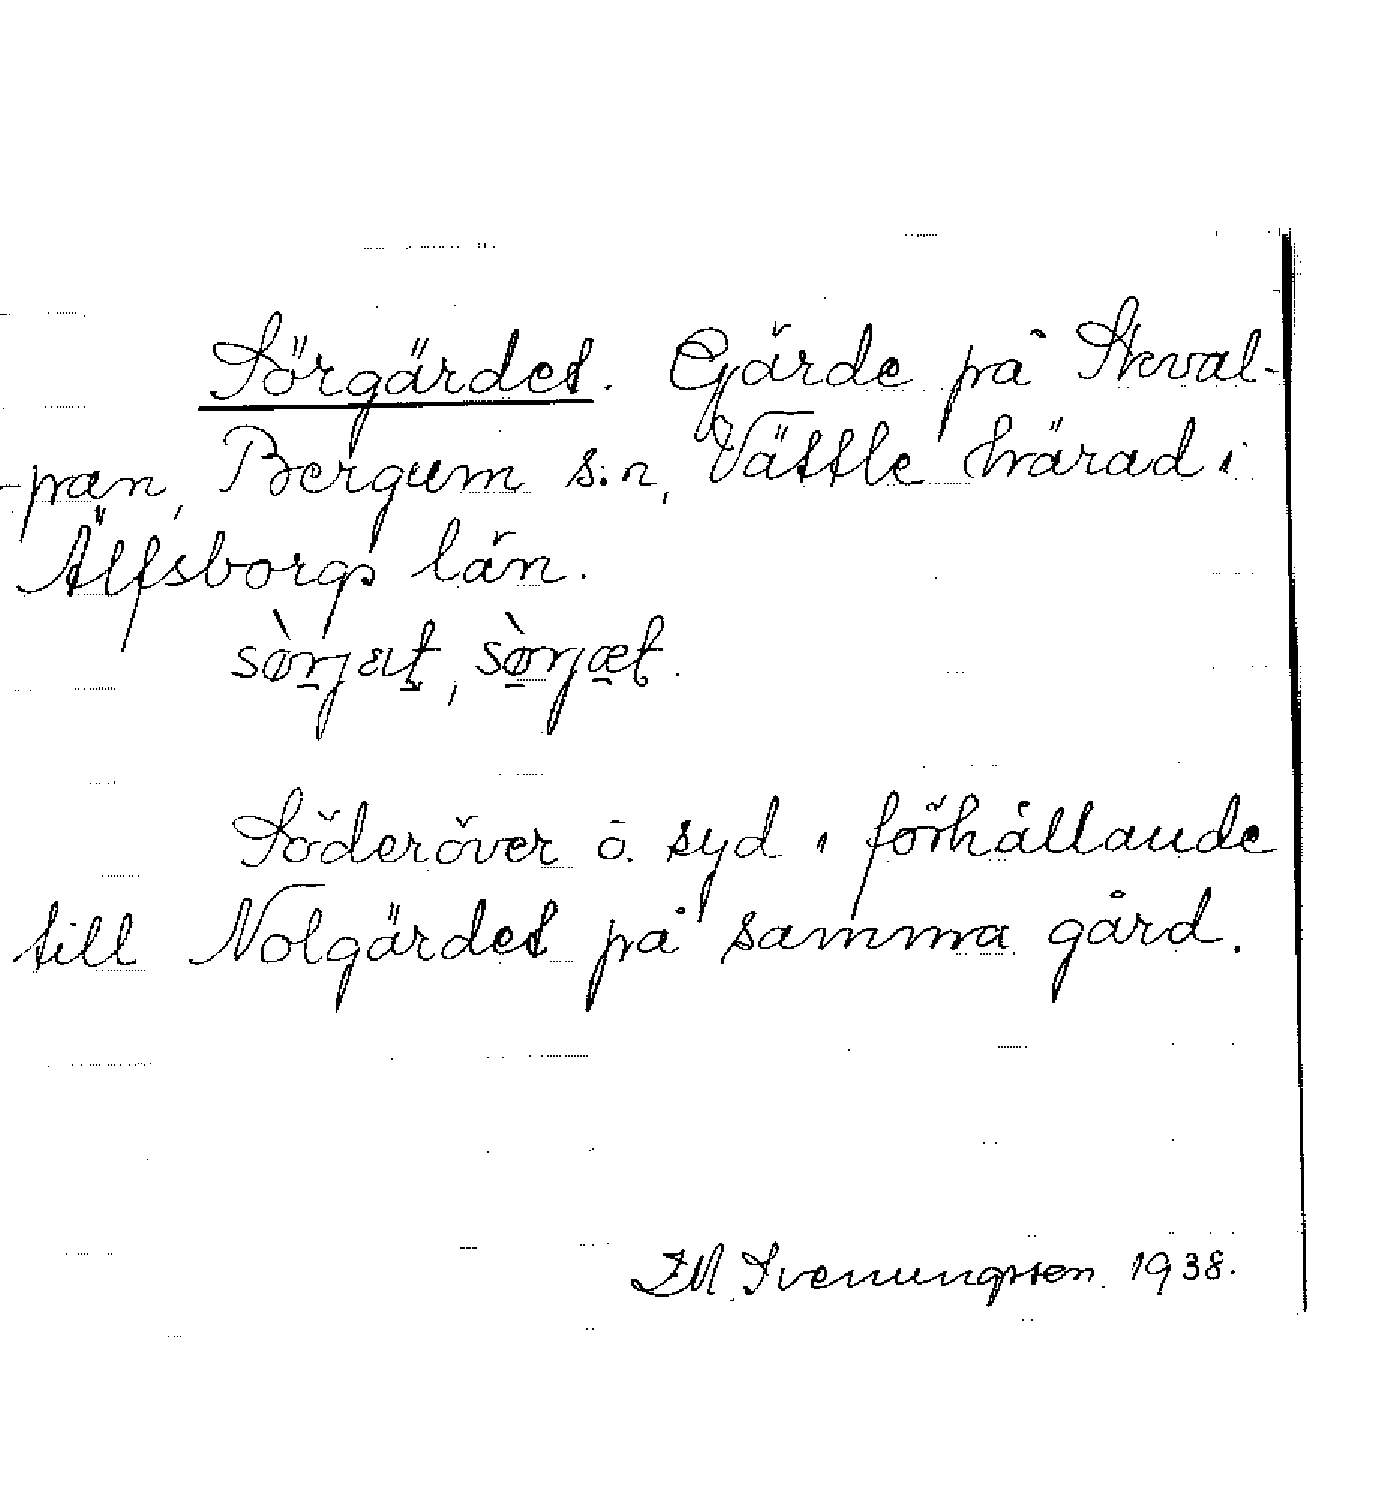 Sörgärdet. Gärde på Steval-
-pan, Bergum s:n, Vättle härad i
Älfsborgs län.
sörjæt, sörjæt.
Söderöver o. syd i förhållande
till Nolgärdet på samma gård.
Svenungsson 1938.